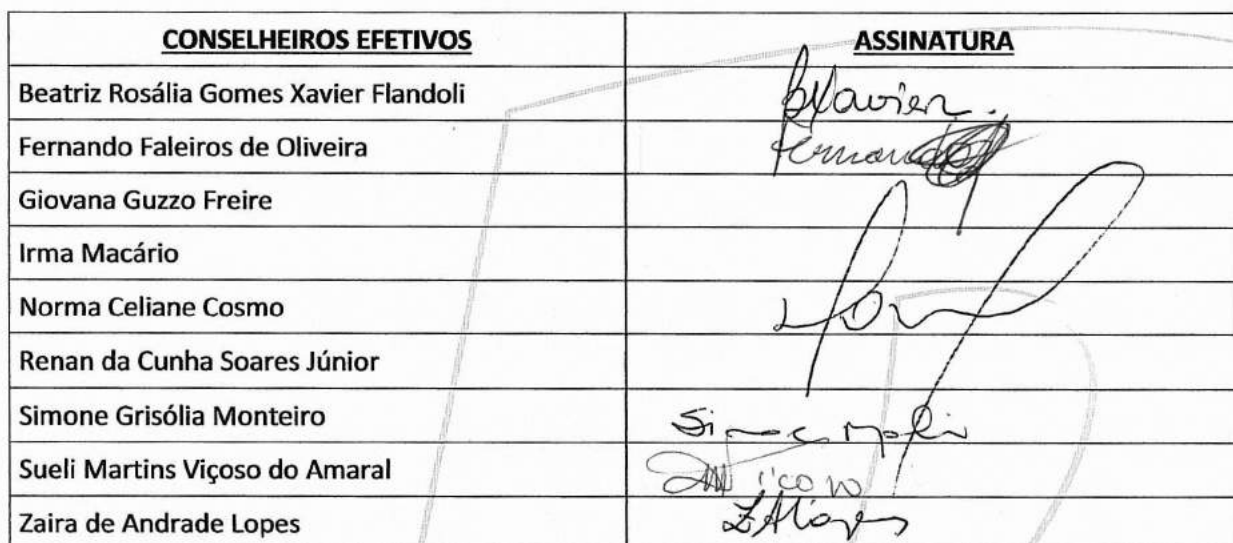 CONSELHEIROS EFETIVOS ASSINATURA
Beatriz Rosália Gomes Xavier Flandoli BXavier.
Fernando Faleiros de Oliveira Fernando
Giovana Guzzo Freire
Irma Macário
Norma Celiane Cosmo
Renan da Cunha Soares Júnior
Simone Grisólia Monteiro
Sueli Martins Viçoso do Amaral
Zaira de Andrade Lopes ZALopes